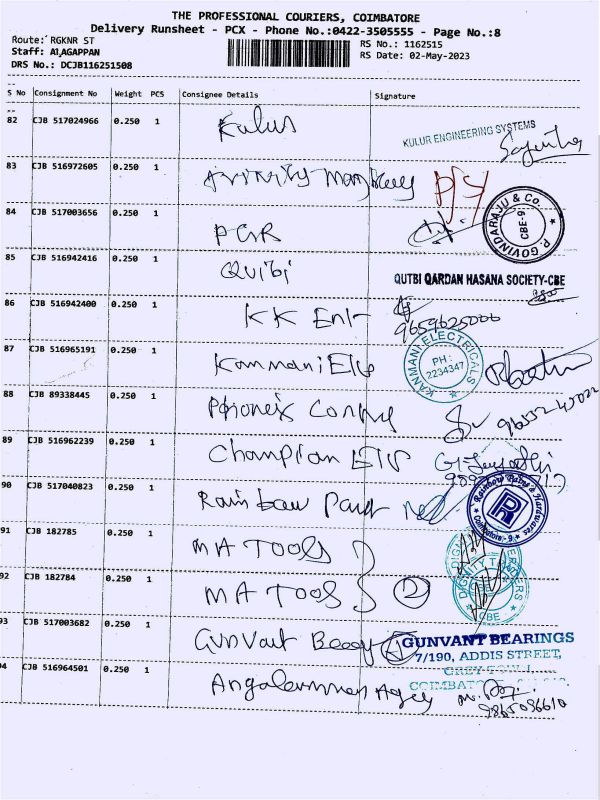 THE PROFESSIONAL COURIERS, COIMBATORE
Delivery Runsheet - PCX - Phone No.:0422-3505555 - Page No.:8
Route: RGKNR ST
RS No.: 1162515
Staff: A1,AGAPPAN
RS Date: 02-May-2023
DRS No.: DCJB116251508
S No Consignment No Weight PCS Consignee Details Signature
82 CJB 517024966 0.250 1 Kulur KULUR ENGINEERING SYSTEMS
83 CJB 516972605 0.250 1
84 CJB 517003656 0.250 1 PGR P. GOVINDARAJU & Co. CBE-9
85 CJB 516942416 0.250 1 Qutbi QUTBI QARDAN HASANA SOCIETY-CBE
86 CJB 516942400 0.250 1 KK Ent 9659625006
87 CJB 516965191 0.250 1 Kanmani Ele KANMANI ELECTRICALS PH: 2234347
88 CJB 89338445 0.250 1
89 CJB 516962239 0.250 1 Champion
90 CJB 517040823 0.250 1 Rainbow Paint Rainbow Paints & Hardwares Coimbatore - 9. R
91 CJB 182785 0.250 1 MA TOOLS
92 CJB 182784 0.250 1 MA TOOLS 2 CBE
93 CJB 517003682 0.250 1 Gunvant GUNVANT BEARINGS
7/190, ADDIS STREET,
94 CJB 516964501 0.250 1 COIMBAT